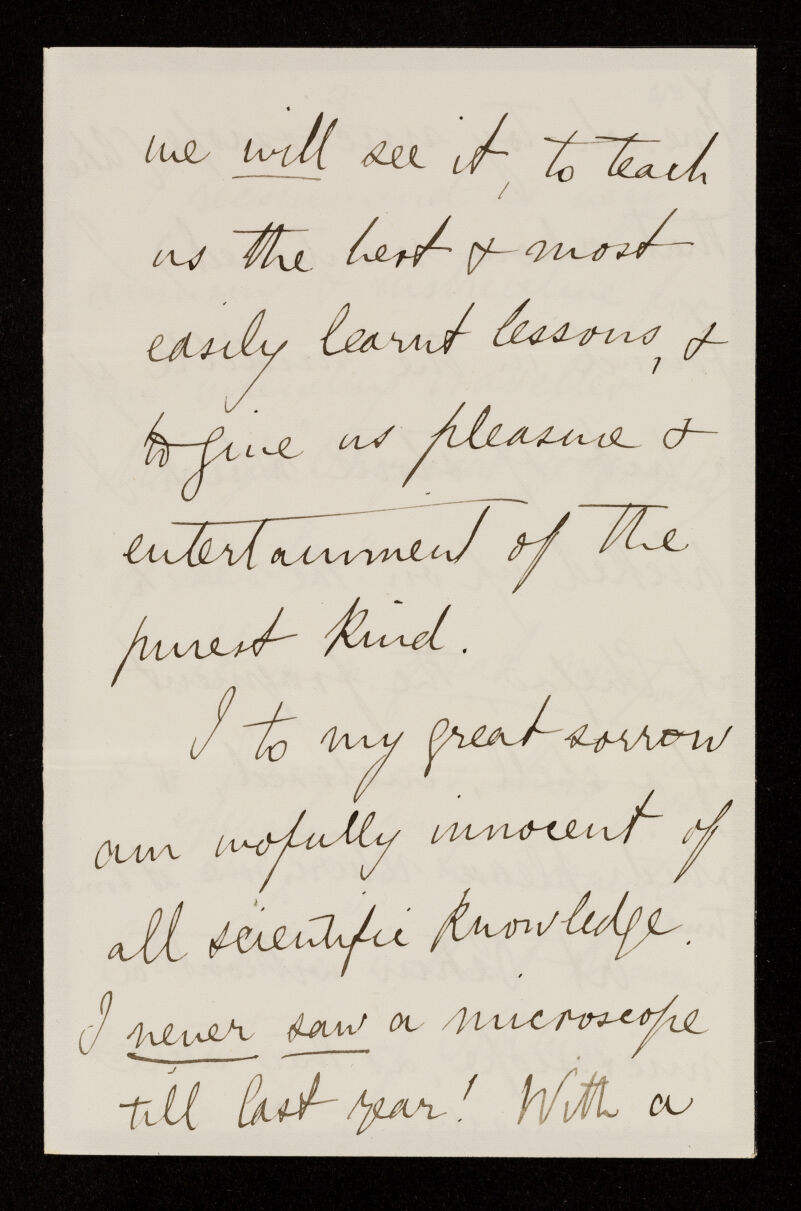 we will see it, to teach
us the best & most
easily learnt lessons, &
to give us pleasure &
entertainment of the
purest kind.
I to my great sorrow
am wofully innocent of
all scientific knowledge.
I never saw a microscope
till last year! With a